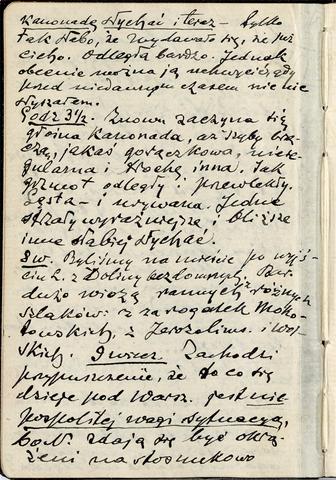 kanonadę słychać i teraz – tylko
tak słabo, że zdawało się, że już
cicho. Odległa bardzo. Jednak
obecnie można ją uchwycić, gdy
przed niedawnym czasem nic nie
słyszałem.
Godz 3½. Znowu zaczyna się
głośna kanonada, aż szyby brzę-
czą, jakaś gorączkowa, niere-
gularna i trochę inna. Jak
grzmot odległy i przewlekły.
Gęsta – i urywana. Jedne
strzały wyraźniejsze i bliższe
inne słabiej słychać.
8 w. Byliśmy na mieście po wyjś-
ciu z. z Doliny bezdomnych. Bar-
dużo wiozą rannych z różnych
szlaków: z za rogatek Moko-
towskich, z Jerozolims. i Wol-
skich. 9 wiecz. Zachodzi
przypuszczenie, że to co się
dzieje pod Warsz. jest nie-
pospolitej wagi sytuacją,
bo N. zdają się być okrą-
żeni na stosunkowo